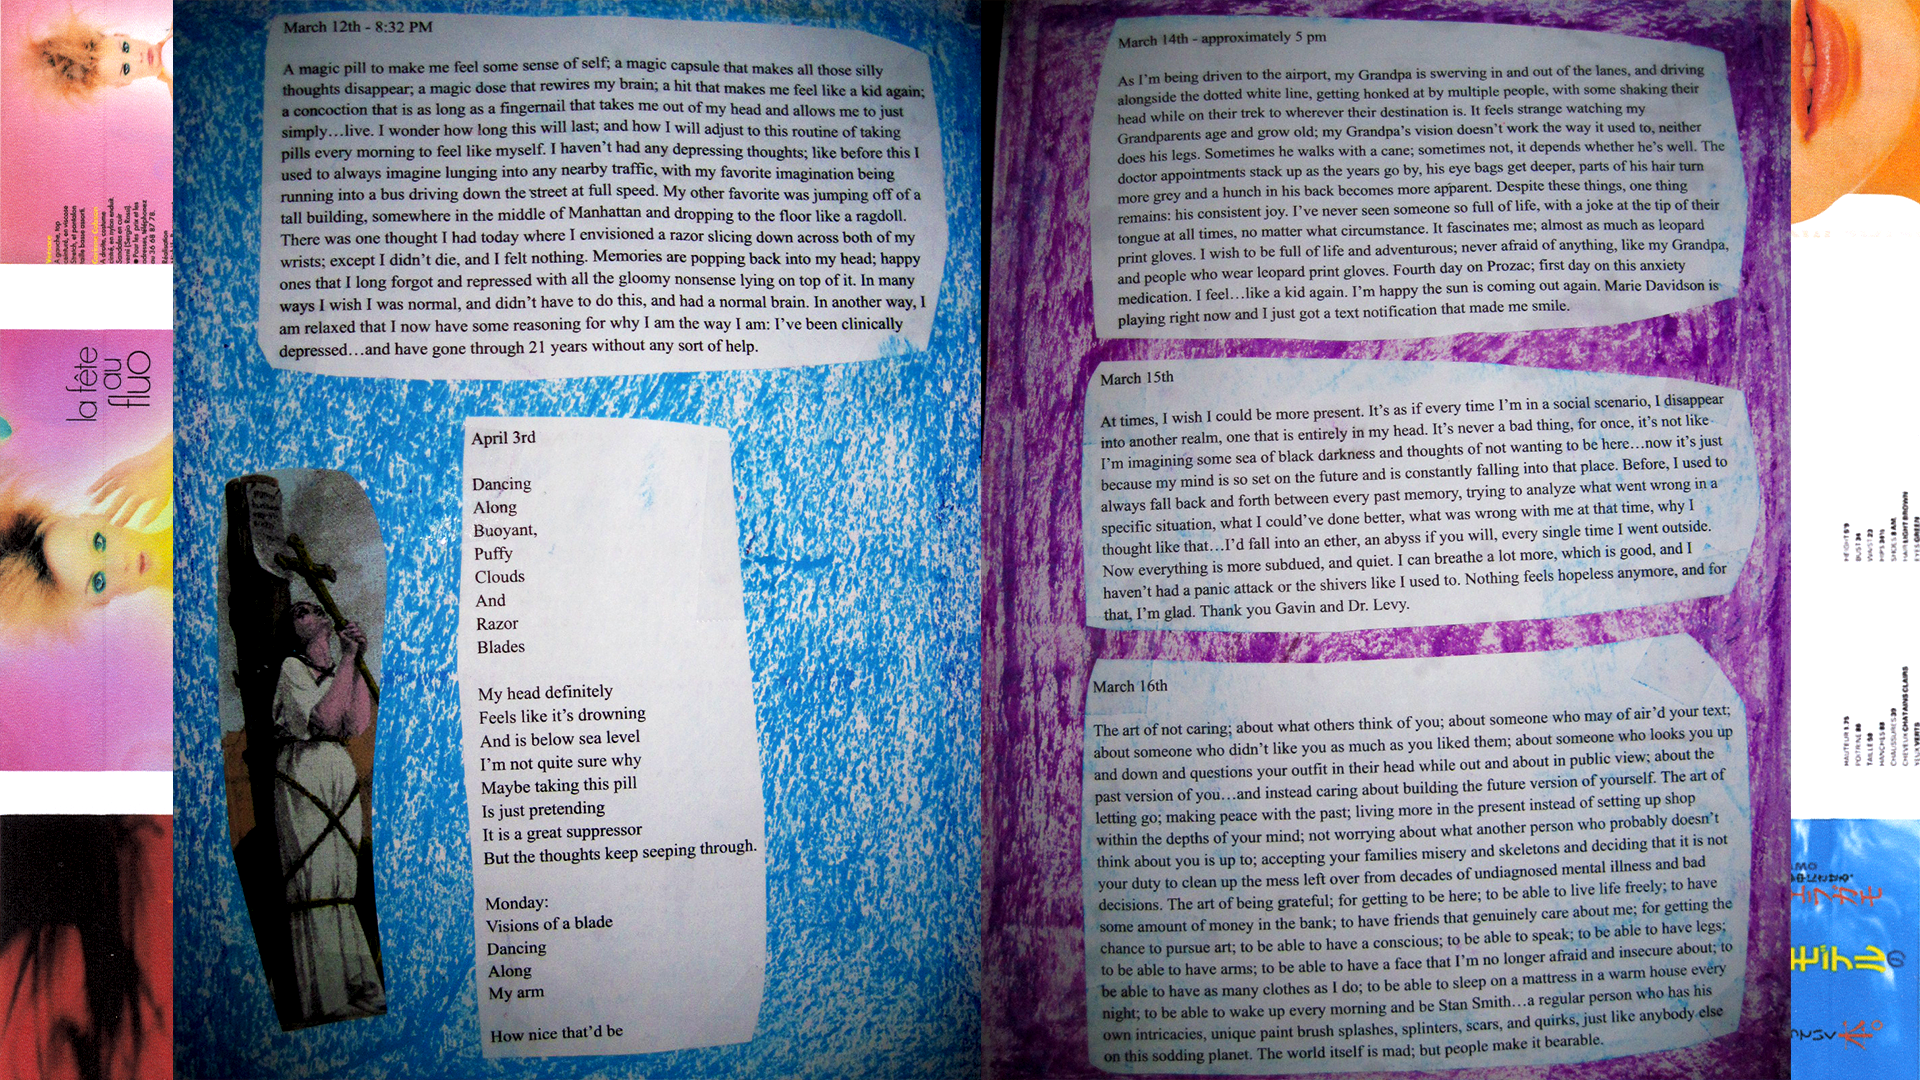 March 12th - 8:32 PM
A magic pill to make me feel some sense of self; a magic capsule that makes all those silly
thoughts disappear; a magic dose that rewires my brain; a hit that makes me feel like a kid again;
a concoction that is as long as a fingernail that takes me out of my head and allows me to just
simply…live. I wonder how long this will last; and how I will adjust to this routine of taking
pills every morning to feel like myself. I haven't had any depressing thoughts; like before this I
used to always imagine lunging into any nearby traffic, with my favorite imagination being
running into a bus driving down the street at full speed. My other favorite was jumping off of a
tall building, somewhere in the middle of Manhattan and dropping to the floor like a ragdoll.
There was one thought I had today where I envisioned a razor slicing down across both of my
wrists; except I didn't die, and I felt nothing. Memories are popping back into my head; happy
ones that I long forgot and repressed with all the gloomy nonsense lying on top of it. In many
ways I wish I was normal, and didn't have to do this, and had a normal brain. In another way, I
am relaxed that I now have some reasoning for why I am the way I am: I've been clinically
depressed…and have gone through 21 years without any sort of help.
April 3rd
Dancing
Along
Buoyant,
Puffy
Clouds
And
Razor
Blades
My head definitely
Feels like it's drowning
And is below sea level
I'm not quite sure why
Maybe taking this pill
Is just pretending
It is a great suppressor
But the thoughts keep seeping through.
Monday:
Visions of a blade
Dancing
Along
My arm
How nice that'd be
March 14th - approximately 5 pm
As I'm being driven to the airport, my Grandpa is swerving in and out of the lanes, and driving
alongside the dotted white line, getting honked at by multiple people, with some shaking their
head while on their trek to wherever their destination is. It feels strange watching my
Grandparents age and grow old; my Grandpa's vision doesn't work the way it used to, neither
does his legs. Sometimes he walks with a cane; sometimes not, it depends whether he's well. The
doctor appointments stack up as the years go by, his eye bags get deeper, parts of his hair turn
more grey and a hunch in his back becomes more apparent. Despite these things, one thing
remains: his consistent joy. I've never seen someone so full of life, with a joke at the tip of their
tongue at all times, no matter what circumstance. It fascinates me; almost as much as leopard
print gloves. I wish to be full of life and adventurous; never afraid of anything, like my Grandpa,
and people who wear leopard print gloves. Fourth day on Prozac; first day on this anxiety
medication. I feel…like a kid again. I'm happy the sun is coming out again. Marie Davidson is
playing right now and I just got a text notification that made me smile.
March 15th
At times, I wish I could be more present. It's as if every time I'm in a social scenario, I disappear
into another realm, one that is entirely in my head. It's never a bad thing, for once, it's not like
I'm imagining some sea of black darkness and thoughts of not wanting to be here…now it's just
because my mind is so set on the future and is constantly falling into that place. Before, I used to
always fall back and forth between every past memory, trying to analyze what went wrong in a
specific situation, what I could've done better, what was wrong with me at that time, why I
thought like that…I'd fall into an ether, an abyss if you will, every single time I went outside.
Now everything is more subdued, and quiet. I can breathe a lot more, which is good, and I
haven't had a panic attack or the shivers like I used to. Nothing feels hopeless anymore, and for
that, I'm glad. Thank you Gavin and Dr. Levy.
March 16th
The art of not caring; about what others think of you; about someone who may of air'd your text;
about someone who didn't like you as much as you liked them; about someone who looks you up
and down and questions your outfit in their head while out and about in public view; about the
past version of you…and instead caring about building the future version of yourself. The art of
letting go; making peace with the past; living more in the present instead of setting up shop
within the depths of your mind; not worrying about what another person who probably doesn't
think about you is up to; accepting your families misery and skeletons and deciding that it is not
your duty to clean up the mess left over from decades of undiagnosed mental illness and bad
decisions. The art of being grateful; for getting to be here; to be able to live life freely; to have
some amount of money in the bank; to have friends that genuinely care about me; for getting the
chance to pursue art; to be able to have a conscious; to be able to speak; to be able to have legs;
to be able to have arms; to be able to have a face that I'm no longer afraid and insecure about; to
be able to have as many clothes as I do; to be able to sleep on a mattress in a warm house every
night; to be able to wake up every morning and be Stan Smith…a regular person who has his
own intricacies, unique paint brush splashes, splinters, scars, and quirks, just like anybody else
on this sodding planet. The world itself is mad; but people make it bearable.
la fête
au
fluo
HEIGHT 5'9
BUST 34
WAIST 23
HAIR LIGHT BROWN
EYES GREEN
HAUTEUR 1.75
TAILLE 58
CHAUSSURES 39
CHEVEUX CHATAINS CLAIRS